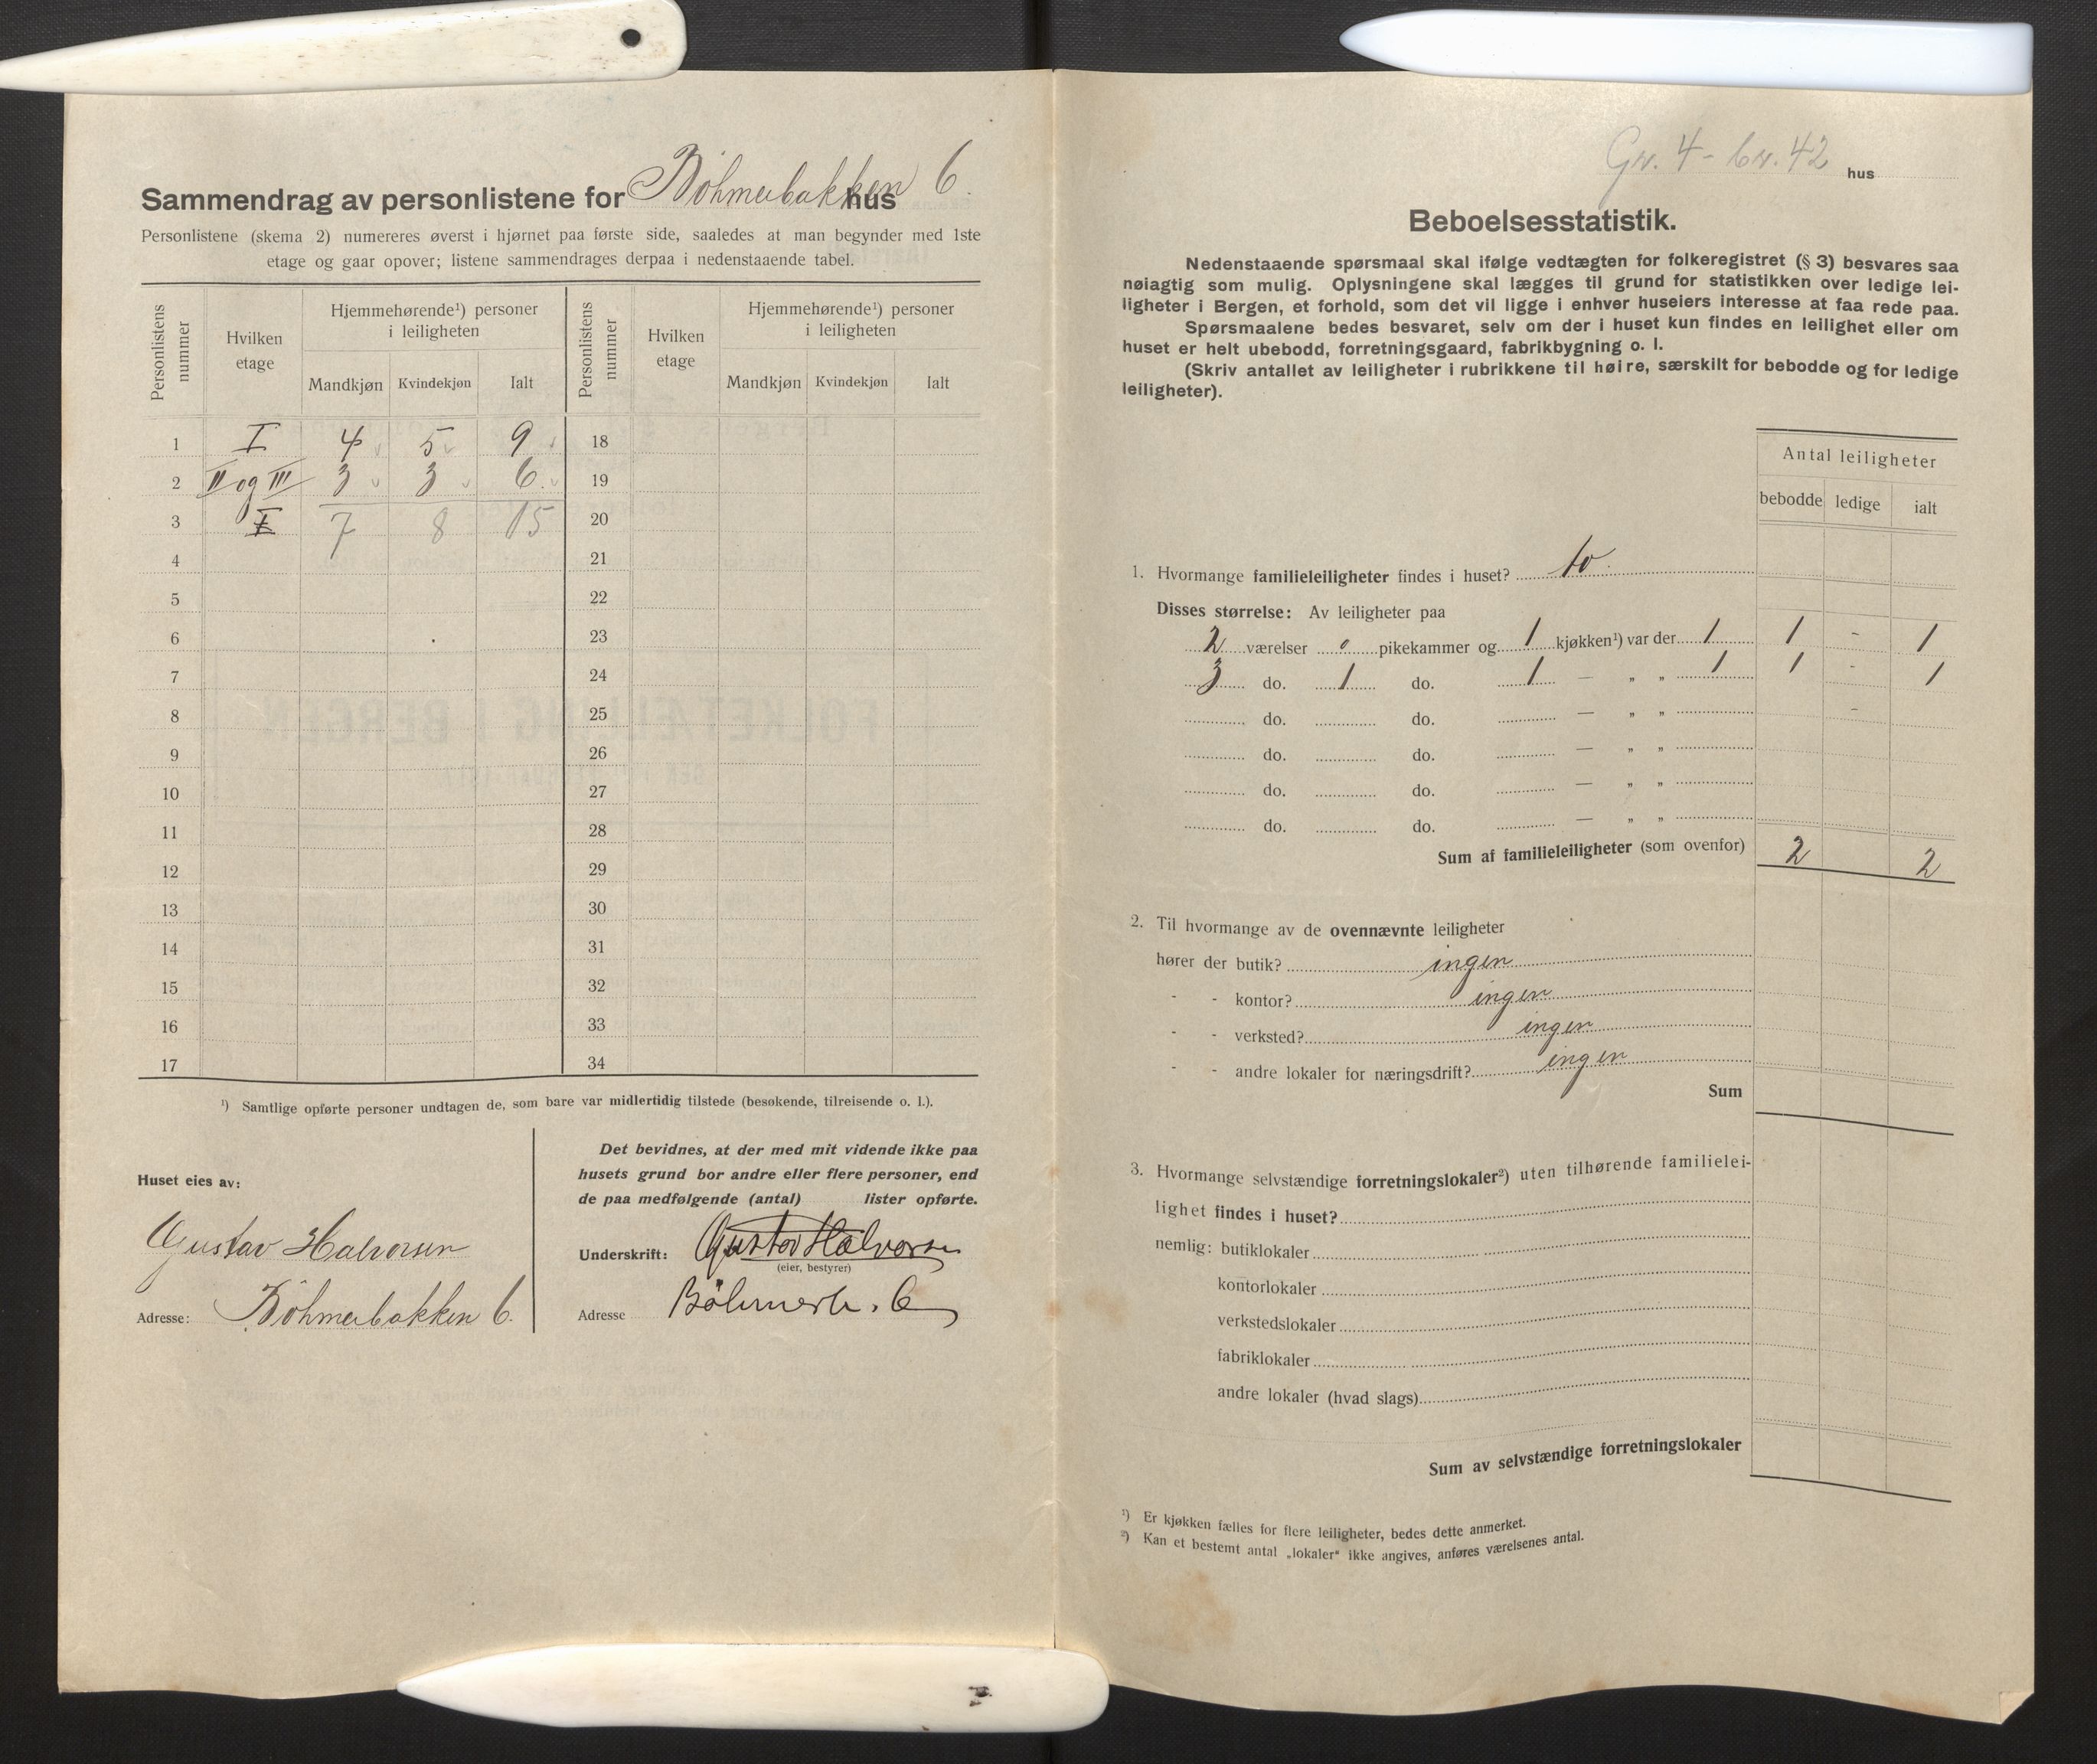 Sammendrag av personlistene for Böhmerbakken 6. hus
Personlistene (skema 2) numereres øverst i hjørnet paa første side, saaledes at man begynder med 1ste
etage og gaar opover; listene sammendrages derpaa i nedenstaaende tabel.
Personlistens nummer
Hvilken etage
Hjemmehørende¹) personer i leiligheten
Mandkjøn Kvindekjøn Ialt
Personlistens nummer
Hvilken etage
Hjemmehørende¹) personer i leiligheten
Mandkjøn Kvindekjøn Ialt
1 I 4 5 9 18
2 II og III 3 3 6 19
3 I 7 8 15 20
4 21
5 22
6 23
7 24
8 25
9 26
10 27
11 28
12 29
13 30
14 31
15 32
16 33
17 34
¹) Samtlige opførte personer undtagen de, som bare var midlertidig tilstede (besøkende, tilreisende o. l.).
Huset eies av:
Gustav Halvorsen
Adresse: Böhmerbakken 6.
Det bevidnes, at der med mit vidende ikke paa
husets grund bor andre eller flere personer, end
de paa medfølgende (antal) lister opførte.
Underskrift: Gustav Halvorsen
(eier, bestyrer)
Adresse Böhmerb. 6
Gr. 4 - br. 42 hus
Beboelsesstatistik.
Nedenstaaende spørsmaal skal ifølge vedtægten for folkeregistret (§ 3) besvares saa
nøiagtig som mulig. Oplysningene skal lægges til grund for statistikken over ledige lei-
ligheter i Bergen, et forhold, som det vil ligge i enhver huseiers interesse at faa rede paa.
Spørsmaalene bedes besvaret, selv om der i huset kun findes en leilighet eller om
huset er helt ubebodd, forretningsgaard, fabrikbygning o. l.
(Skriv antallet av leiligheter i rubrikkene til høire, særskilt for bebodde og for ledige
leiligheter).
Antal leiligheter
bebodde ledige ialt
1. Hvormange familieleiligheter findes i huset? to.
Disses størrelse: Av leiligheter paa
2 værelser 0 pikekammer og 1 kjøkken¹) var der 1 1 - 1
3 do. 1 do. 1 — „ „ 1 1 - 1
do. do. — „ „ -
do. do. — „ „
do. do. — „ „
do. do. — „ „
Sum af familieleiligheter (som ovenfor) 2 2
2. Til hvormange av de ovennævnte leiligheter
hører der butik? ingen
- - kontor? ingen
- - verksted? ingen
- - andre lokaler for næringsdrift? ingen
Sum
3. Hvormange selvstændige forretningslokaler²) uten tilhørende familielei-
lighet findes i huset?
nemlig: butiklokaler
kontorlokaler
verkstedslokaler
fabriklokaler
andre lokaler (hvad slags)
Sum av selvstændige forretningslokaler
¹) Er kjøkken fælles for flere leiligheter, bedes dette anmerket.
²) Kan et bestemt antal „lokaler" ikke angives, anføres værelsenes antal.